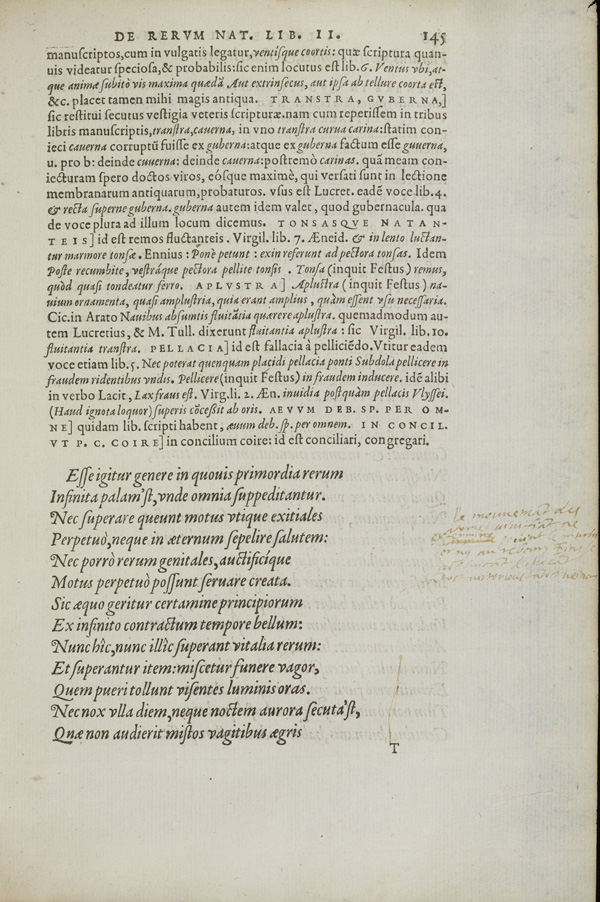 DE RERVM NAT. LIB. II. 145
manuscriptos, cum in vulgatis legatur, ventisque coortis: quæ scriptura quan-
uis videatur speciosa, & probabilis: sic enim locutus est lib. 6. Ventus vbi, at-
que animæ subitò vis maxima quædã Aut extrinsecus, aut ipsa ab tellure coorta est,
&c. placet tamen mihi magis antiqua. TRANSTRA, GVBERNA,]
sic restitui secutus vestigia veteris scripturæ. nam cum reperissem in tribus
libris manuscriptis, transtra, cauerna, in vno transtra curua carina: statim con-
ieci cauerna corruptũ fuisse ex guberna: atque ex guberna factum esse guuerna,
u. pro b: deinde cuuerna: deinde cauerna: postremò carinas. quã meam con-
iecturam spero doctos viros, eósque maximè, qui versati sunt in lectione
membranarum antiquarum, probaturos. vsus est Lucret. eadẽ voce lib. 4.
& recta superne guberna. guberna autem idem valet, quod gubernacula. qua
de voce plura ad illum locum dicemus. TONSASQVE NATAN-
TEIS] id est remos fluctanteis. Virgil. lib. 7. Æneid. & in lento luctan-
tur marmore tonsæ. Ennius: Ponè petunt: exin referunt ad pectora tonsas. Idem
Poste recumbite, vestráque pectora pellite tonsis. Tonsa (inquit Festus) remus,
quòd quasi tondeatur ferro. APLVSTRA] Aplustra (inquit Festus) na-
uium ornamenta, quasi amplustria, quia erant amplius, quàm essent vsu necessaria.
Cic. in Arato Nauibus absumtis fluitãtia quærere aplustra. quemadmodum au-
tem Lucretius, & M. Tull. dixerunt fluitantia aplustra: sic Virgil. lib. 10.
fluitantia transtra. PELLACIA] id est fallacia à pelliciẽdo. Vtitur eadem
voce etiam lib. 5. Nec poterat quenquam placidi pellacia ponti Subdola pellicere in
fraudem ridentibus vndis. Pellicere (inquit Festus) in fraudem inducere. idẽ alibi
in verbo Lacit, Lax fraus est. Virg. li. 2. Æn. inuidia postquàm pellacis Vlyssei.
(Haud ignota loquor) superis cõcessit ab oris. AEVVM DEB. SP. PER OM-
NE] quidam lib. scripti habent, æuum deb. sp. per omnem. IN CONCIL.
VT P. C. COIRE] in concilium coire: id est conciliari, congregari.
Esse igitur genere in quouis primordia rerum
Infinita palam'st, vnde omnia suppeditantur.
Nec superare queunt motus vtique exitiales
Perpetuò, neque in æternum sepelire salutem:
Nec porrò rerum genitales, auctificíque
Motus perpetuò possunt seruare creata.
Sic æquo geritur certamine principiorum
Ex infinito contractum tempore bellum:
Nunc hîc, nunc illîc superant vitalia rerum:
Et superantur item: miscetur funere vagor,
Quem pueri tollunt visentes luminis oras.
Nec nox vlla diem, neque noctem aurora secuta'st,
Quæ non audierit mistos vagitibus ægris
T